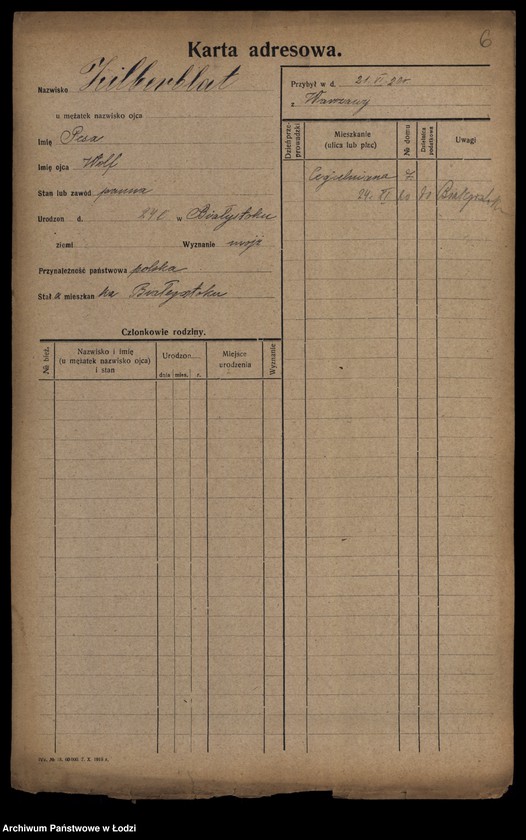 6
Karta adresowa.
Nazwisko Zilberblat
u mężatek nazwisko ojca
Imię Pesa
Imię ojca Wolf
Stan lub zawód panna
Urodzon d. w Białystoku
ziemi Wyznanie mojż
Przynależność państwowa polska
Stał a mieszkan ka Białegostoku
Członkowie rodziny.
№ bież.
Nazwisko i imię (u mężatek nazwisko ojca) i stan
Urodzon....
dnia mies. r.
Miejsce urodzenia
Wyznanie
Przybył w d. 21. VI
z Warszawy
Dzień przeprowadzki
Mieszkanie (ulica lub plac)
№ domu
Dzielnica podatkowa
Uwagi
Cegielniana 7
24. VI do Białegostoku
Archiwum Państwowe w Łodzi